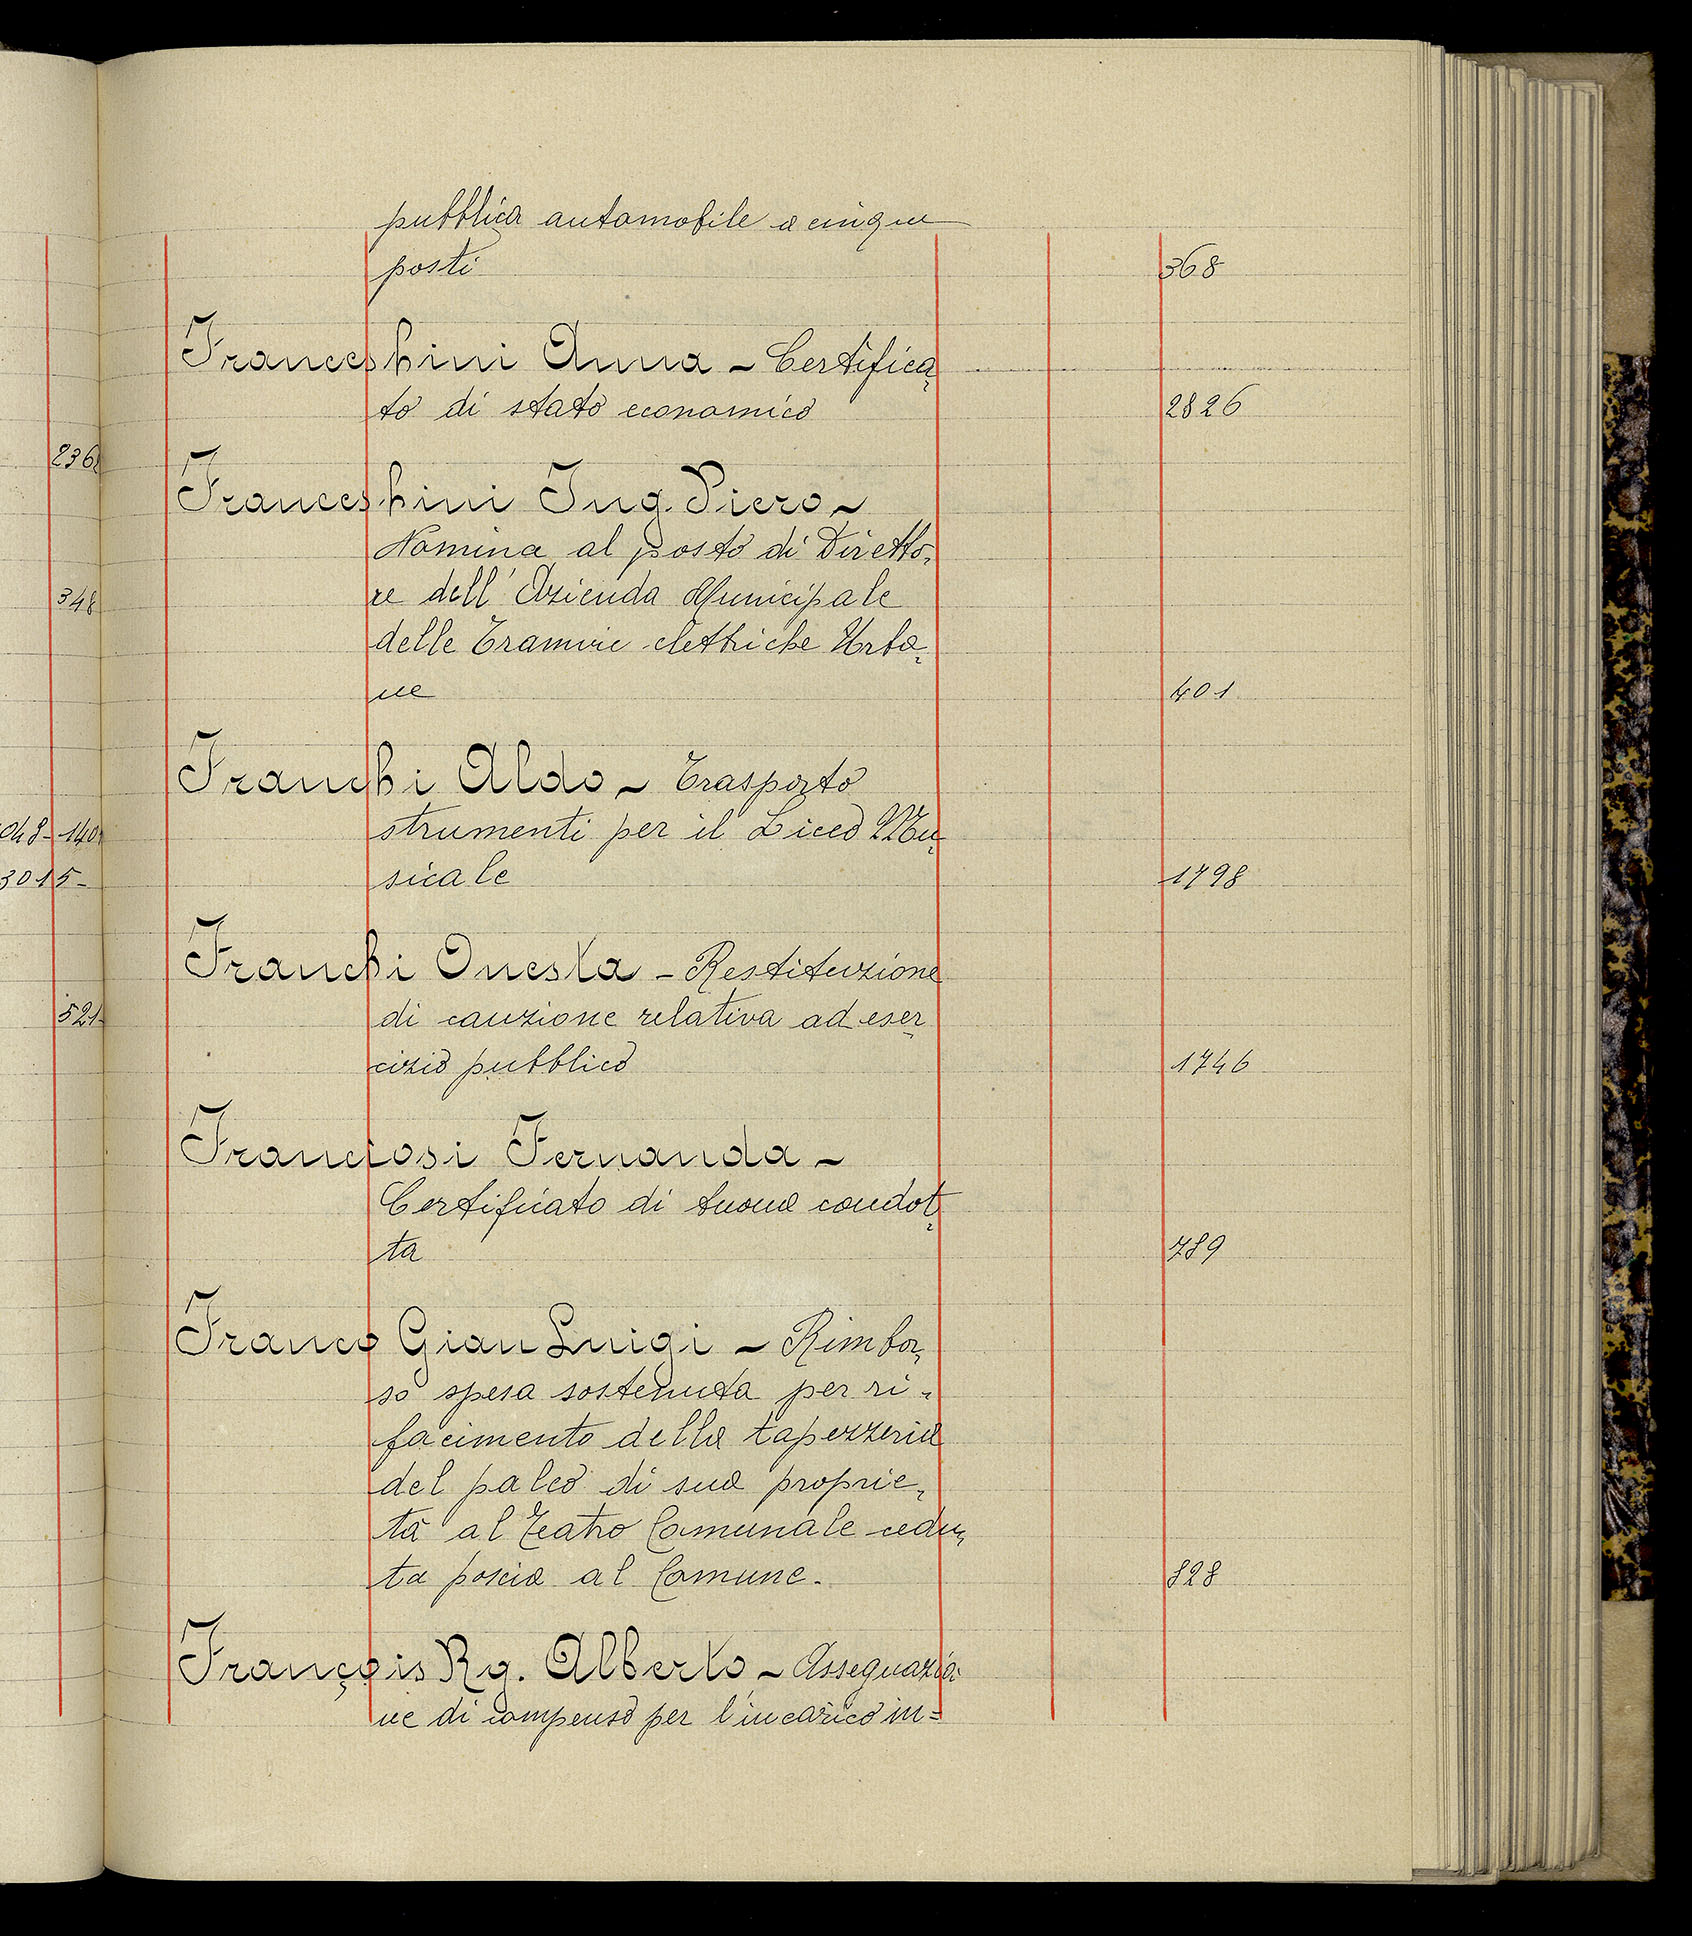 pubblica automobile a cinque
posti 368
Franceshini Anna - Certifica
to di stato economico 2826
Franceshini Ing. Piero -
Nomina al posto di Diretto,
re dell'Azienda Municipale
delle Tramvie elettriche Urba,
ne 401
Franchi Aldo - Trasporto
strumenti per il Liceo Mu,
sicale 1798
Franchi Onesta - Restituzione
di cauzione relativa ad eser
cizio pubblico 1746
Franciosi Fernanda -
Certificato di buona condot,
ta 789
Franco Gian Luigi - Rimbor,
so spesa sostenuta per ri-
facimento della tapezzeria
del palco di sua proprie,
tà al Teatro Comunale cedu,
ta poscia al Comune. 828
François Rg. Alberto - Assegnazio
ne di compenso per l'incarico in=
236
348
048-140
3015-
521-